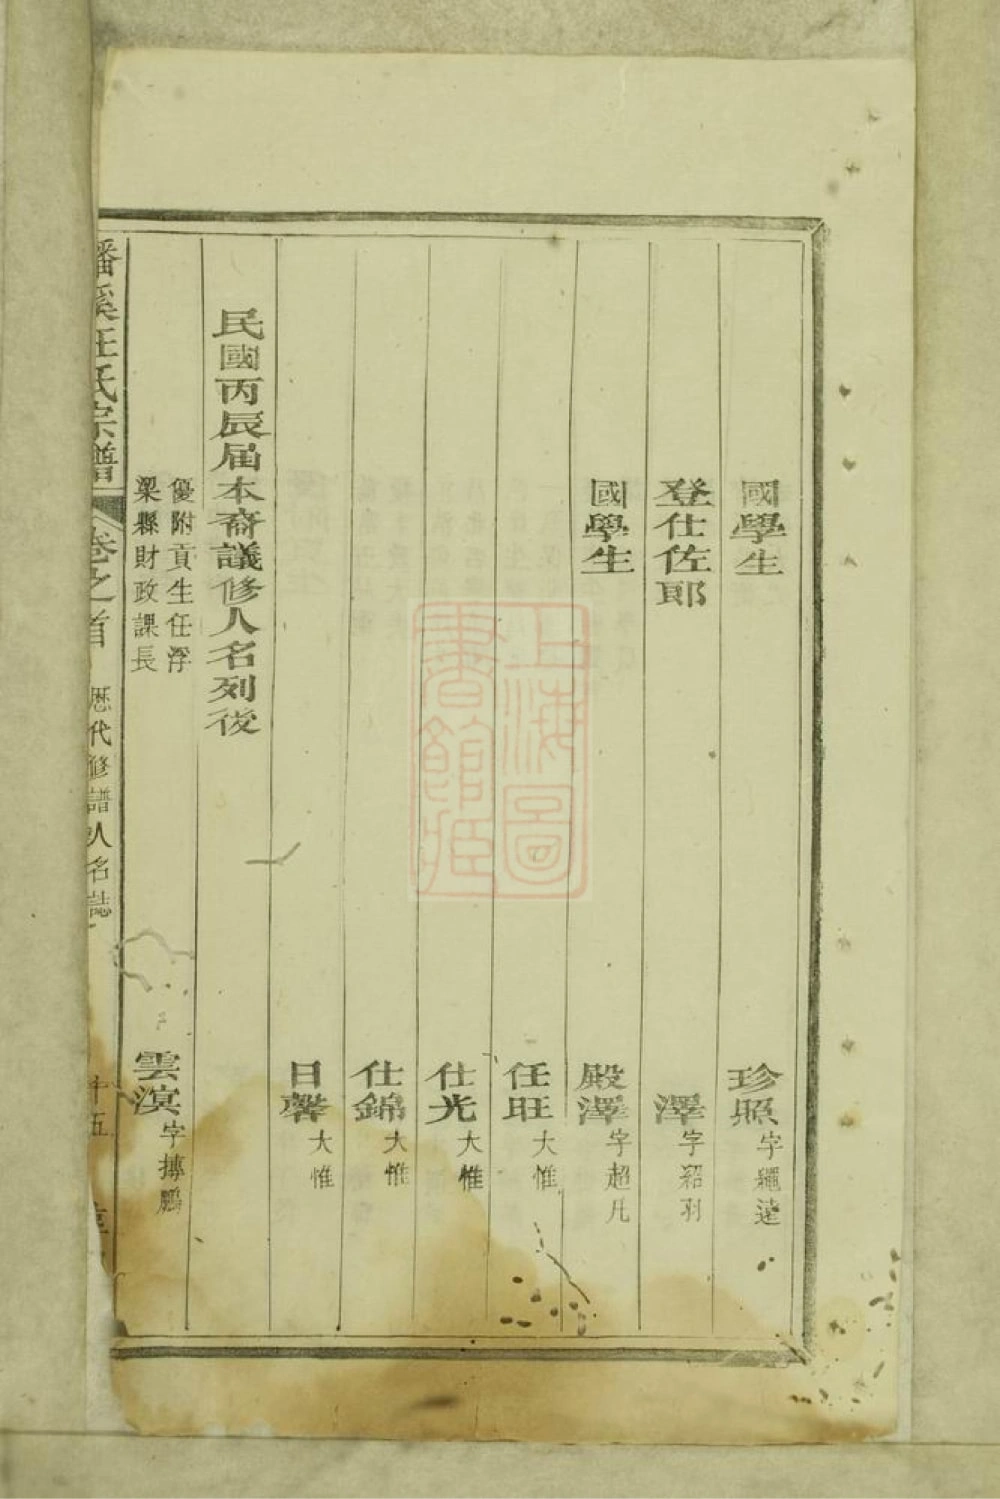 國學生 珍照 字繩遠
登仕佐郎 澤 字紹羽
國學生 殿澤 字超凡
任旺 大惟
仕光 大惟
仕錦 大惟
日馨 大惟
民國丙辰屆本裔議修人名列後
優附貢生任浮
梁縣財政課長
雲溟 字摶鵬
溪汪氏宗譜 卷之首 歷代修譜人名誌 十五
上海圖
書館藏